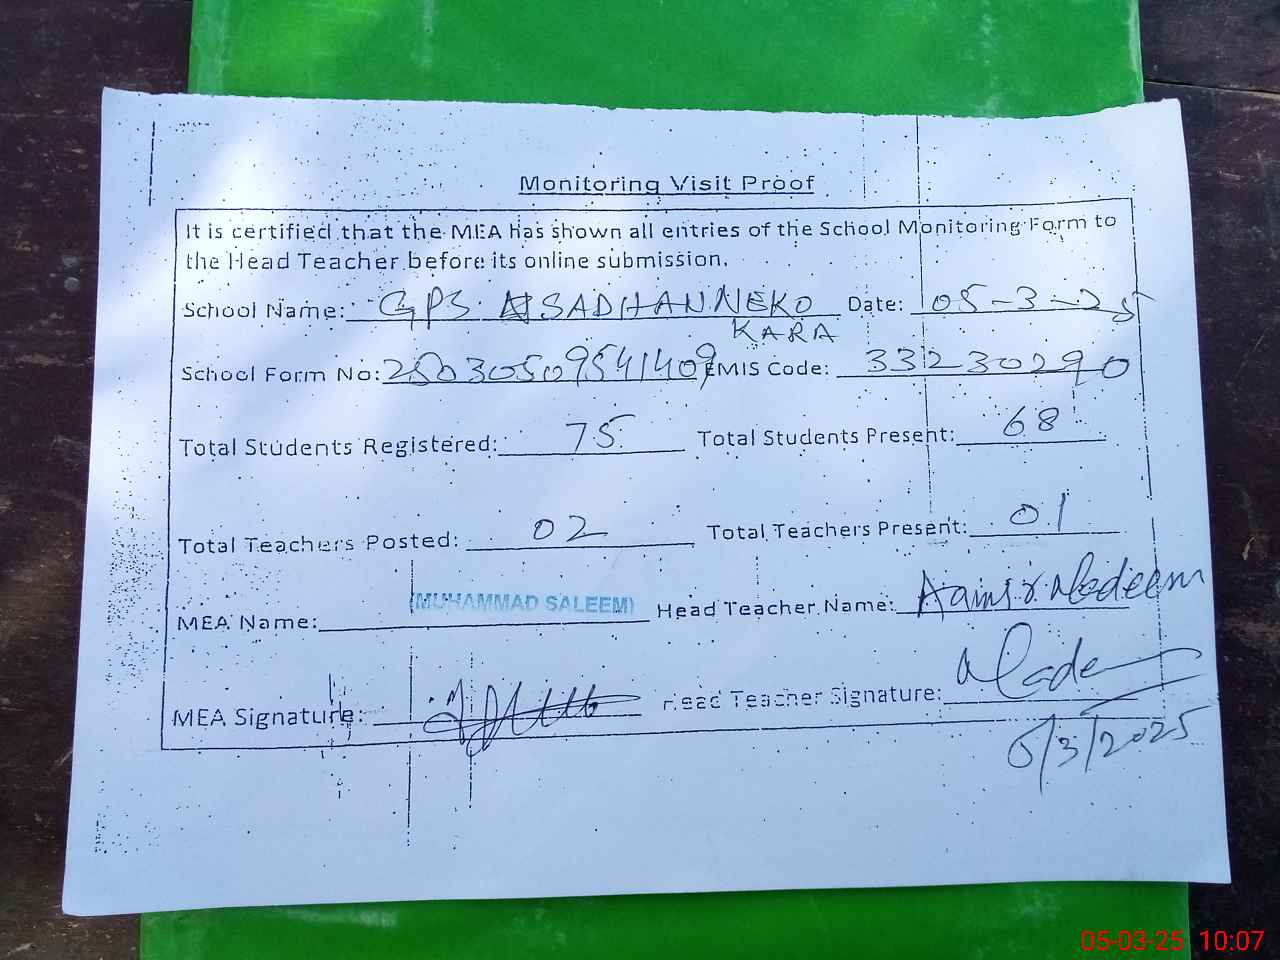 Monitoring Visit Proof
It is certified that the MEA has shown all entries of the School Monitoring Form to
the Head Teacher before its online submission.
School Name: GPS SADHANNEKO Date: 05-3-25
KARA
School Form No: 25030509541409 EMIS Code: 33230290
Total Students Registered: 75 Total Students Present: 68
Total Teachers Posted: 02 Total Teachers Present: 01
MEA Name: (MUHAMMAD SALEEM) Head Teacher Name: Aamir Nadeem
MEA Signature: Head Teacher Signature: Nadeem
5/3/2025
05-03-25 10:07